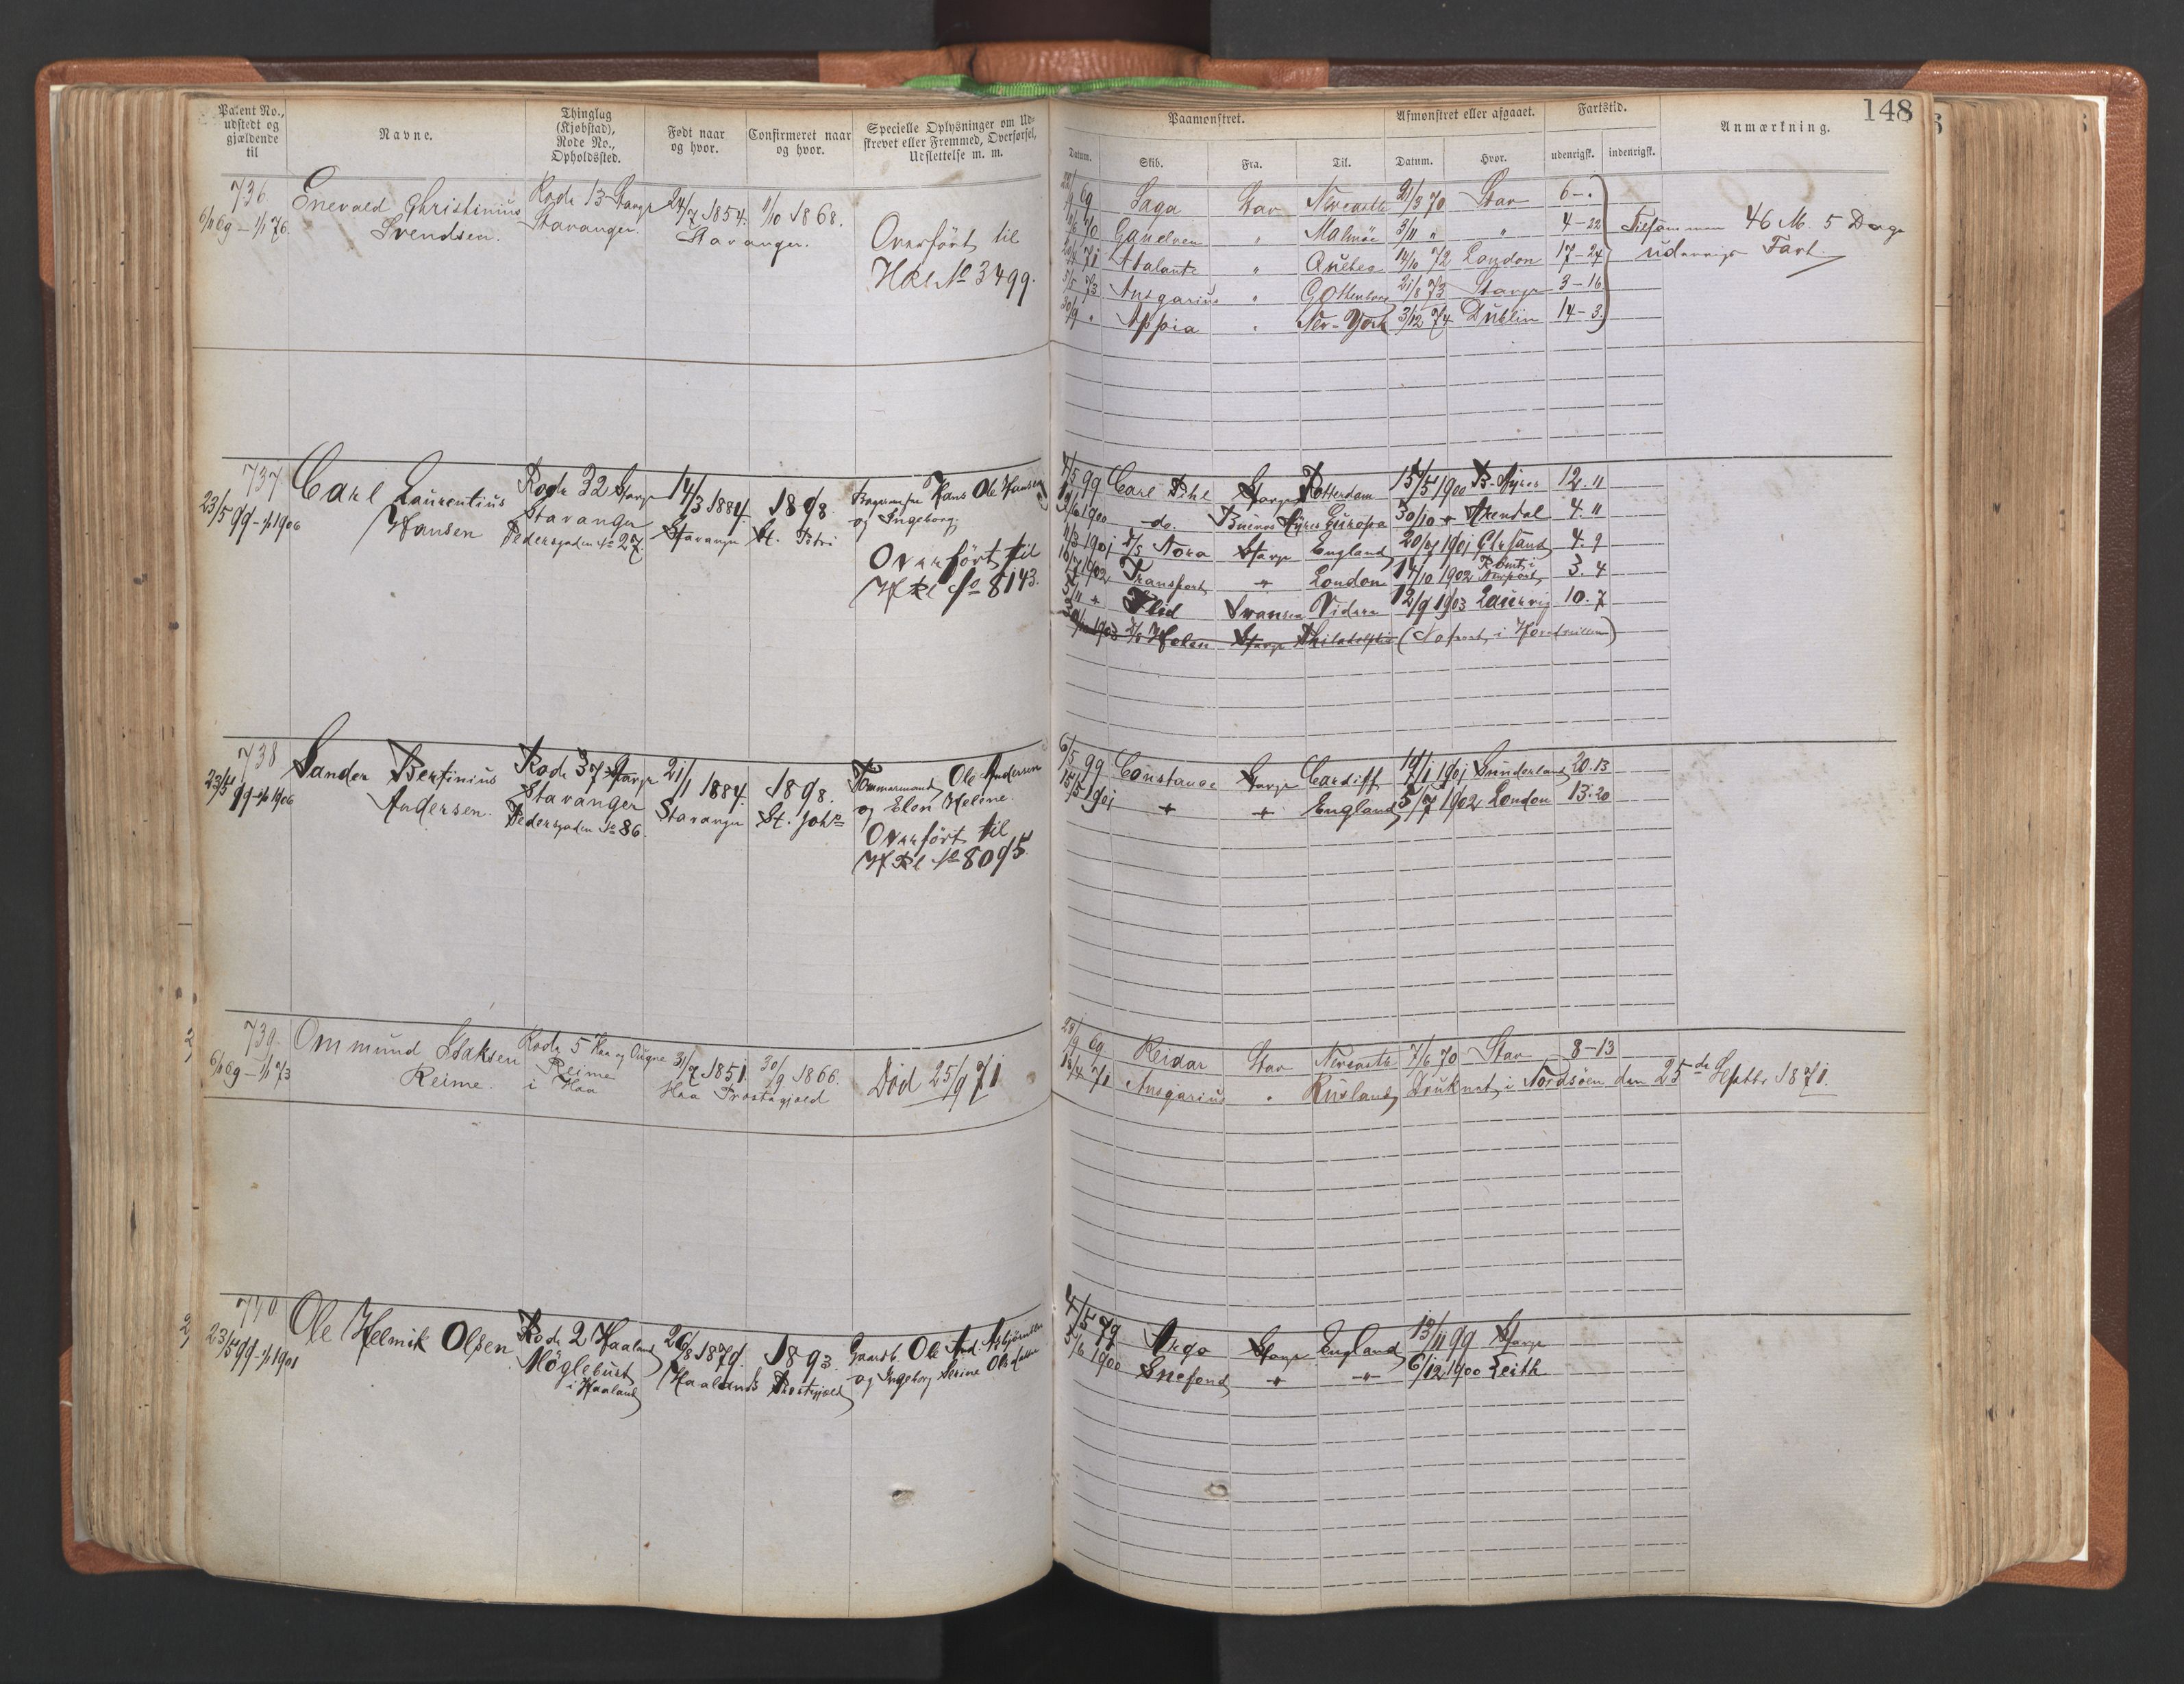 148
Patent No., udstedt og gjældende til
Navne.
Thinglag (Kjøbstad), Rode No., Opholdssted.
Født naar og hvor.
Confirmeret naar og hvor.
Specielle Oplysninger om Udskrevet eller Fremmed, Overførsel, Udslettelse m. m.
Paamønstret.
Afmønstret eller afgaaet.
Fartstid.
Anmærkning.
Datum. Skib. Fra. Til. Datum. Hvor. udenrigsk. indenrigsk.
736
6/11 69 - 1/1 76.
Enevald Christinius
Svendsen.
Rode 13 Stavgr
Stavanger.
24/7 1854.
Stavanger.
11/10 1868.
Overført til
No 3499.
69 Saga Stav Newcastle 21/3 70 Stav 6 - .
70 Ganelven " Malmöe 3/11 " " 4 - 22
71 Atalante " Quebec 14/10 72 London 17 - 24
3/5 73 Ansgarius " Gothenborg 21/8 73 Stavgr 3 - 16
30/9 " Appia " New-York 3/12 74 Dublin 14 - 3.
Tilsammen 46 M. 5 Dage
udenrigs Fart.
737
23/5 99 - 1/1 1906
Carl Laurentius
Hansen
Rode 32 Stavgr
Stavanger
Pedersgaden No 27.
14/3 1884.
Stavanger
1898.
St. Petri
Hans Ole Hansen
og Ingeborg.
Overført til
H Rl No 8143.
4/5 99 Carl Pihl Stavgr Rotterdam 15/5 1900 B-Ayres 12. 11
1900 do. Buenos Ayres Europa 30/10 " Arendal 4. 11
1901 D/S Nora Stavgr England 20/7 1901 Chrsand 4. 9
16/7 1902 Transport " London 14/10 1902 Newport 3. 4
5/11 " Flid Swansea 12/9 1903 Laurvig 10. 7
1903 D/S Helen Stavgr Philadelphia
738
23/5 99 - 1/1 1906
Sander Bertinius
Andersen.
Rode 37 Stavgr
Stavanger
Pedersgaden No 86.
21/1 1884.
Stavanger
1898.
St. Johs
Tømmermand Ole Andersen
og Elen Helene.
Overført til
H Rl No 8095.
6/5 99 Constance Stavgr Cardiff 19/1 1901 Sunderland 20. 13
15/5 1901 " " England 5/7 1902 London 13. 20
739.
6/11 69 - 1/1 73
Ommund Isaksen
Reime.
Rode 5 Haa og Ougne
Reime
i Haa
31/7 1851.
30/9 1866.
Haa Præstegjæld
Død 25/9 71
28/9 69 Reidar Stav Newcastle 7/6 70 Stav 8 - 13
71 Ansgarius " Rusland Druknet i Nordsøen den 25de Septbr 1871.
740
23/5 99 - 1/1 1901
Ole Helmik Olsen
Rode 2 Haaland
Möglebust
i Haaland
26/8 1879.
1893.
Haalands Præstegjæld
Gaardb. Ole And. Asbjørnsen
og Ingeborg Serine Olsdatter
4/5 99 Argo Stavgr England 13/11 99 Stavgr
5/6 1900 Snefond " " 6/12 1900 Leith